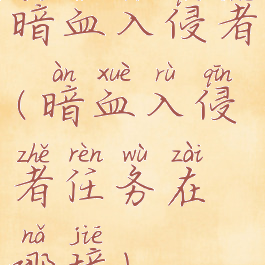 暗血入侵者
àn xuè rù qīn
(暗血入侵
zhě rèn wù zài
者任务在
nǎ jiē
哪接)